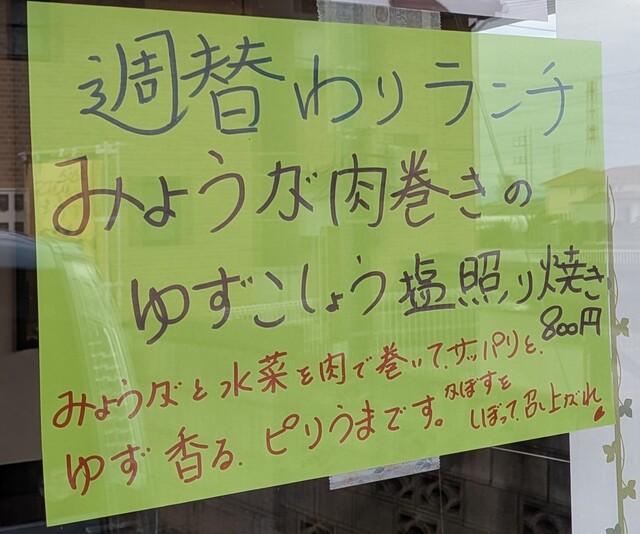 週替わりランチ
みょうが肉巻きの
ゆずこしょう塩照り焼き
800円
みょうがと水菜を肉で巻いて、サッパリと、
ゆず香る、ピリうまです。かぼすを
しぼって、召し上がれ